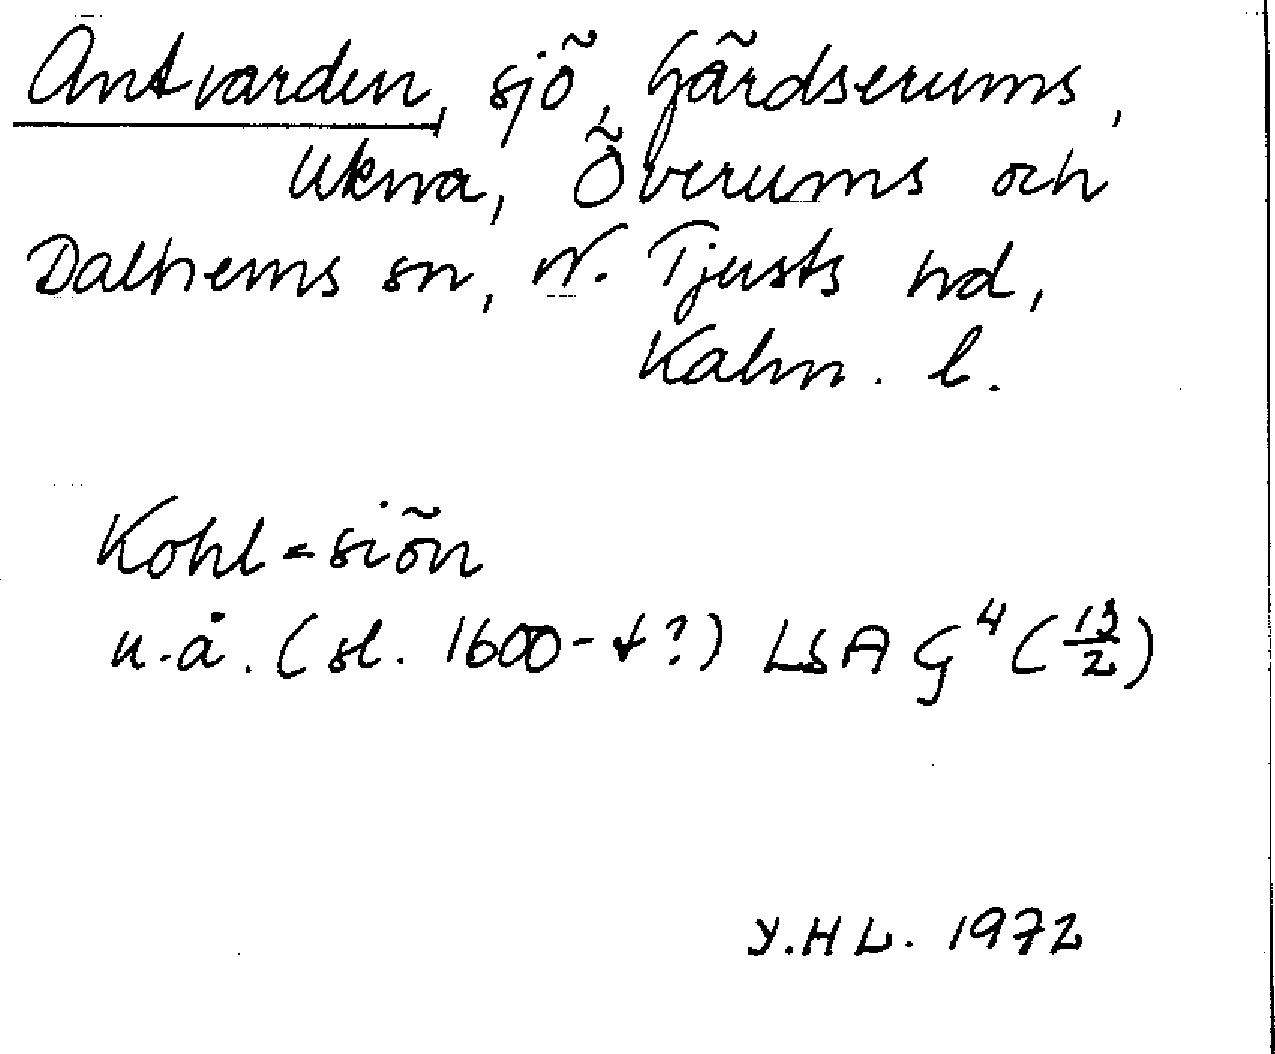 Antvarden, sjö, Gärdserums,
Ukna, Överums och
Dalhems sn, N. Tjusts hd,
Kalm. l.
Kohl=siön
u.å. (sl. 1600-t?) LSA G⁴ (13/2)
Y.HL. 1972